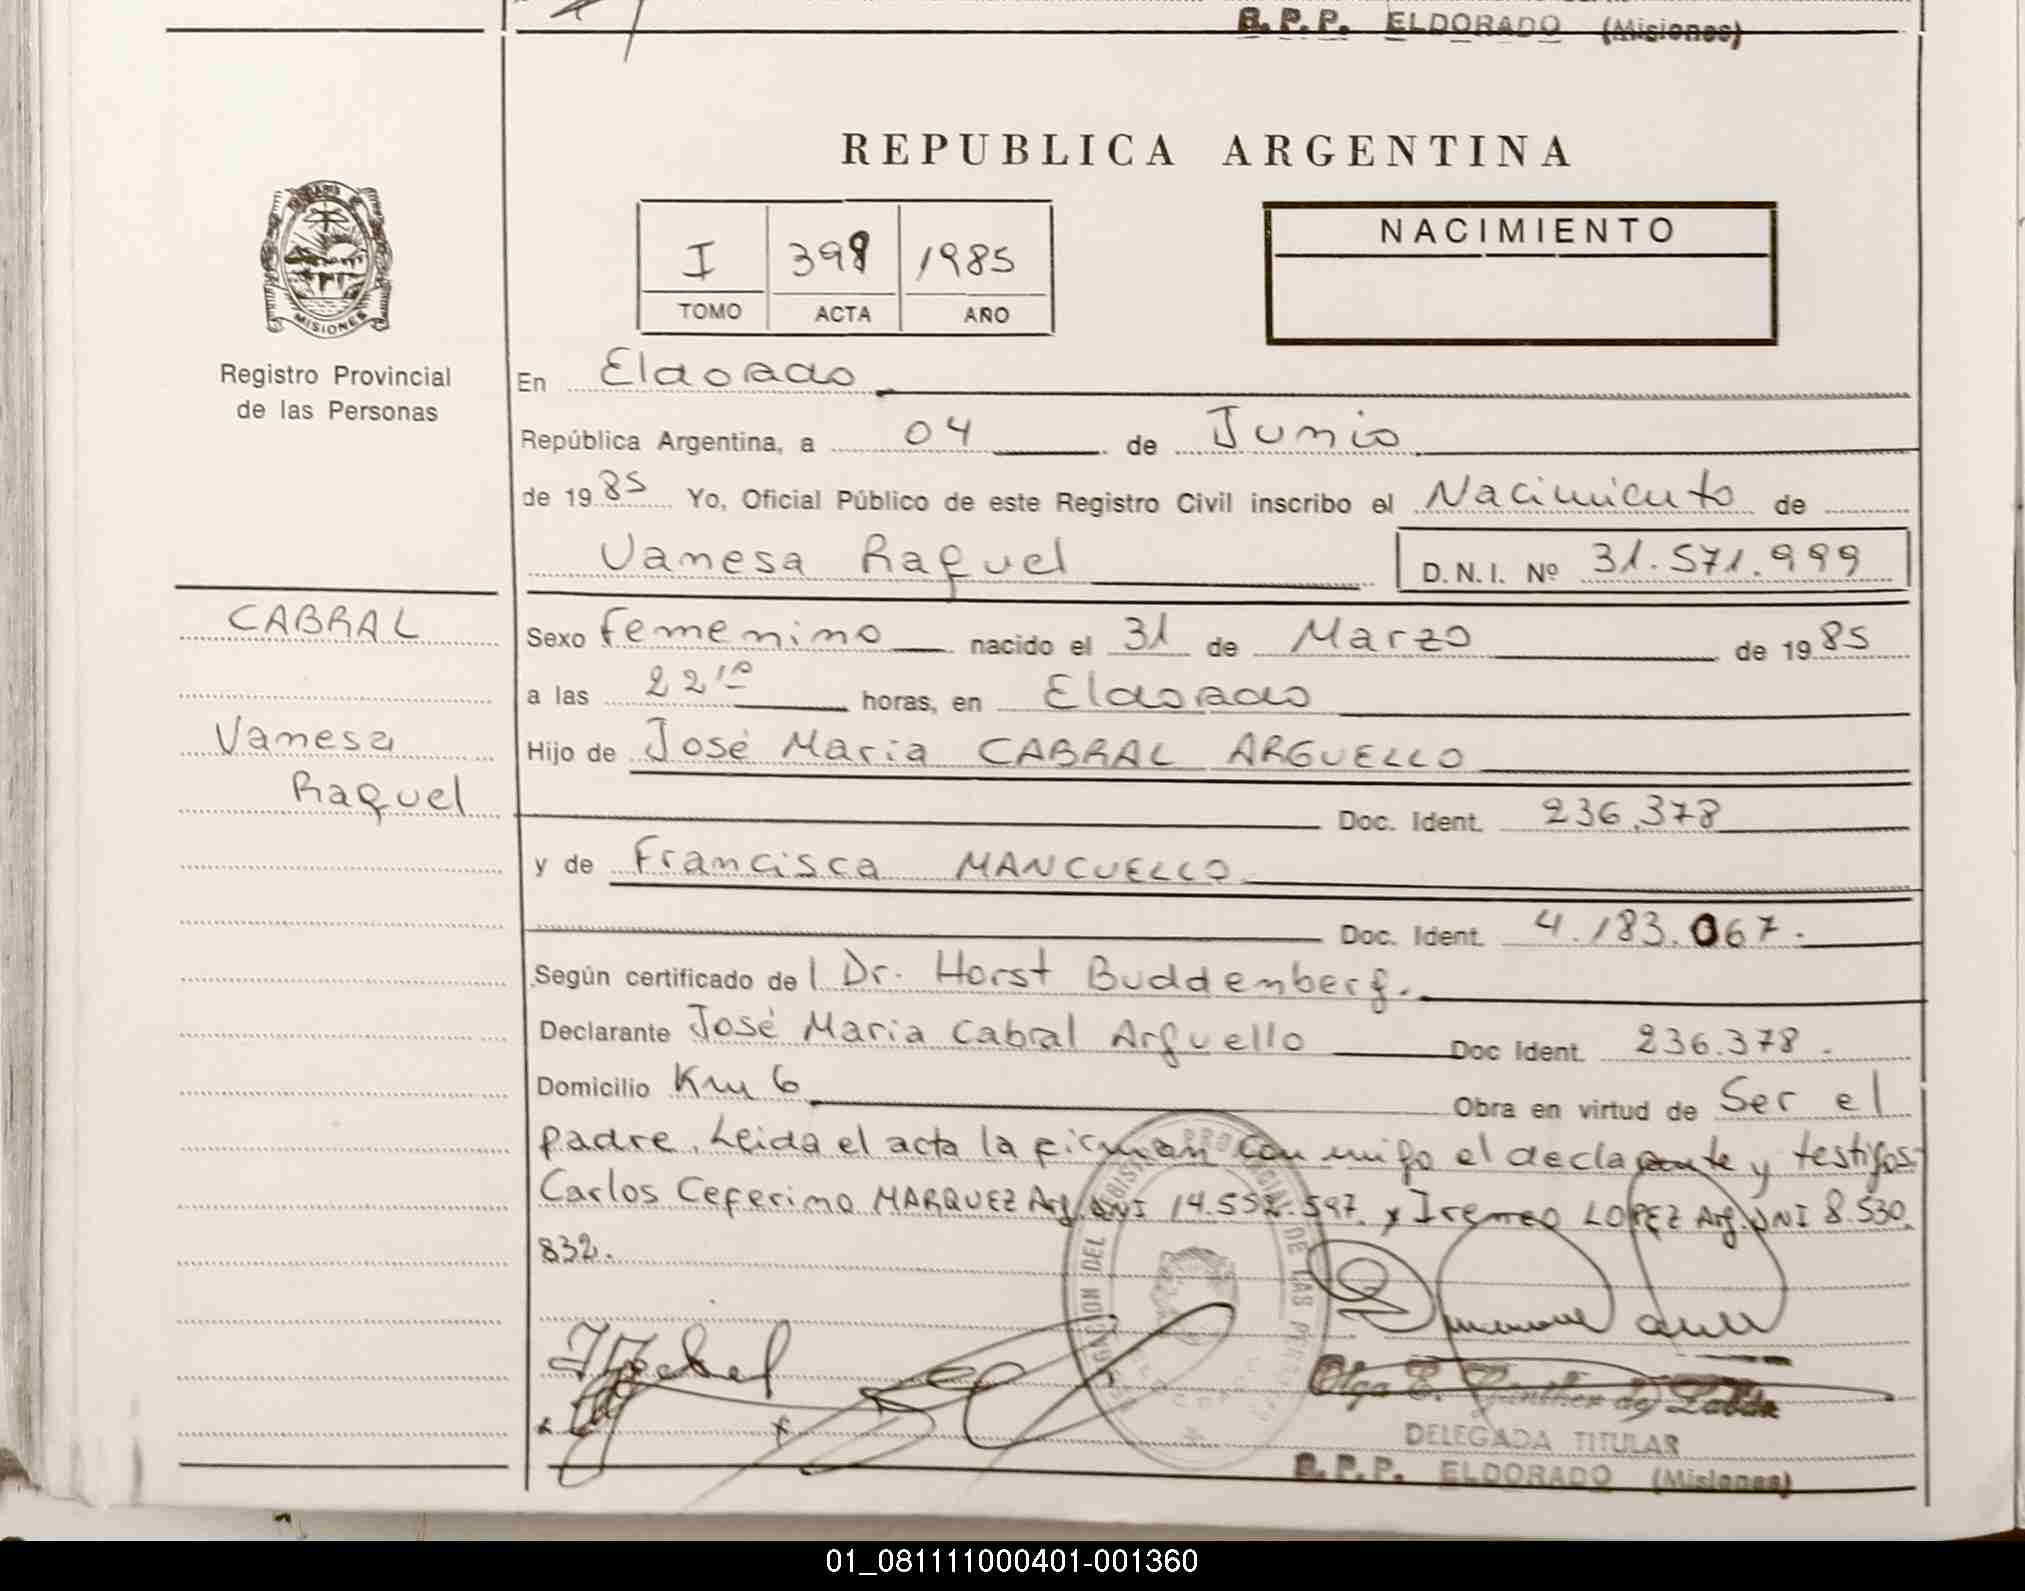 B. P. P. ELDORADO (Misiones)
REPUBLICA ARGENTINA
MISIONES
Registro Provincial
de las Personas
I 398 1985
TOMO ACTA AÑO
NACIMIENTO
En Eldorado
República Argentina, a 04 de Junio
de 1985 Yo, Oficial Público de este Registro Civil inscribo el Nacimiento de
Vanesa Raquel D.N.I. Nº 31.571.999
CABRAL
Vanesa
Raquel
Sexo femenino nacido el 31 de Marzo de 1985
a las 22 10 horas, en Eldorado
Hijo de José Maria CABRAL ARGUELLO
Doc. Ident. 236.378
y de Francisca MANCUELLO
Doc. Ident. 4.183.067.
Según certificado de l Dr. Horst Buddemberg.
Declarante José Maria Cabral Arguello Doc Ident. 236.378.
Domicilio Km 6 Obra en virtud de Ser el
padre. Leida el acta la firman con migo el declarante y testigos
Carlos Ceferino MARQUEZ Arg. DNI 14.552.597. y Ireneo LOPEZ Arg. DNI 8.530.
832.
DELEGADA TITULAR
B. P. P. ELDORADO (Misiones)
01_081111000401-001360